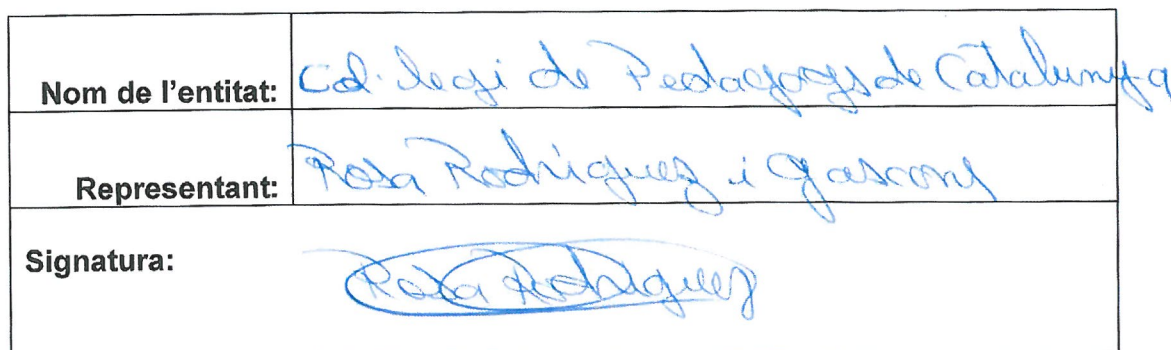 Nom de l'entitat: Col·legi de Pedagogs de Catalunya
Representant: Rosa Rodríguez i Gascons
Signatura: Rosa Rodríguez